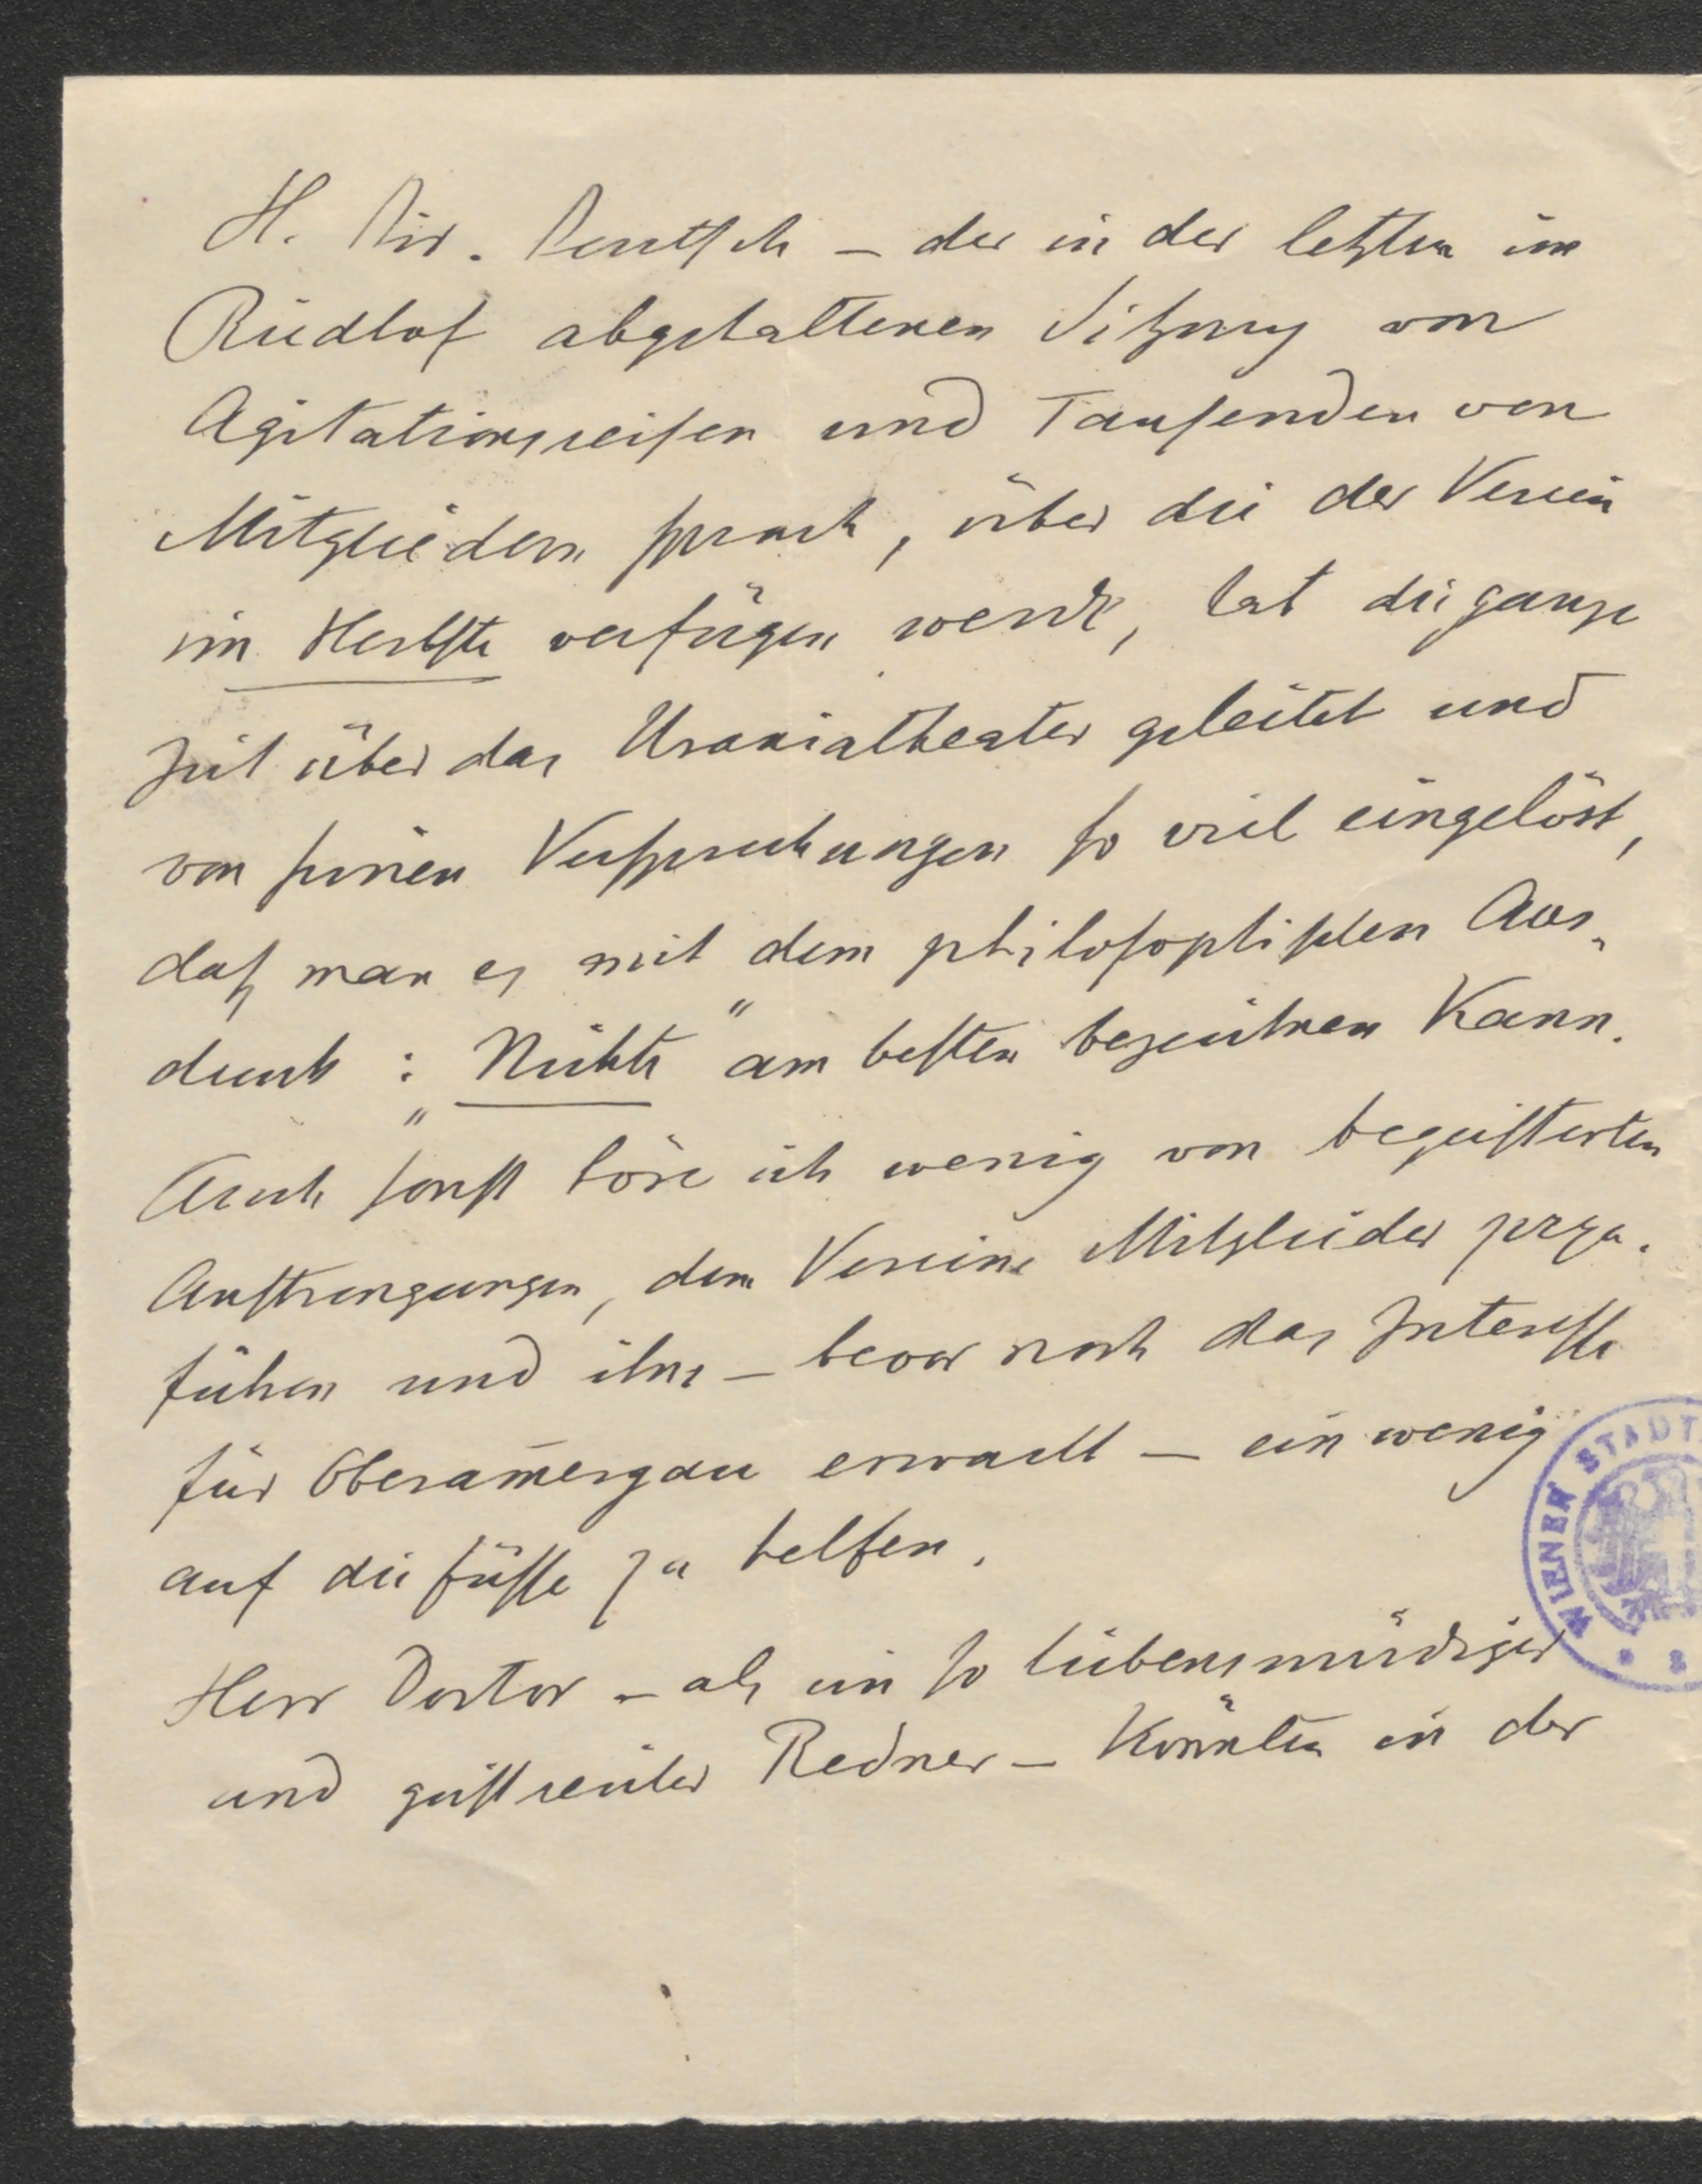 H. Dir. Deutsch – der in der letzten im
Riedhof abgehaltenen Sitzung von
Agitationsreisen und Tausenden von
Mitgliedern sprach, über die der Verein
im Herbste verfügen werde, hat die ganze
Zeit über das Uraniatheater geleitet und
von seinen Versprechungen so viel eingelöst,
daß man es mit dem philosophischen Aus-
druck: „Nichts“ am besten bezeichnen kann.
Auch sonst höre ich wenig von begeisterten
Anstrengungen, dem Vereine Mitglieder zuzu-
führen und ihm – bevor noch das Interesse
für Oberam̄ergau erwacht – ein wenig
auf die Füsse zu helfen.
Herr Doctor – als ein so liebenswürdiger
und geistreicher Redner – könnten in der
WIENER STADT